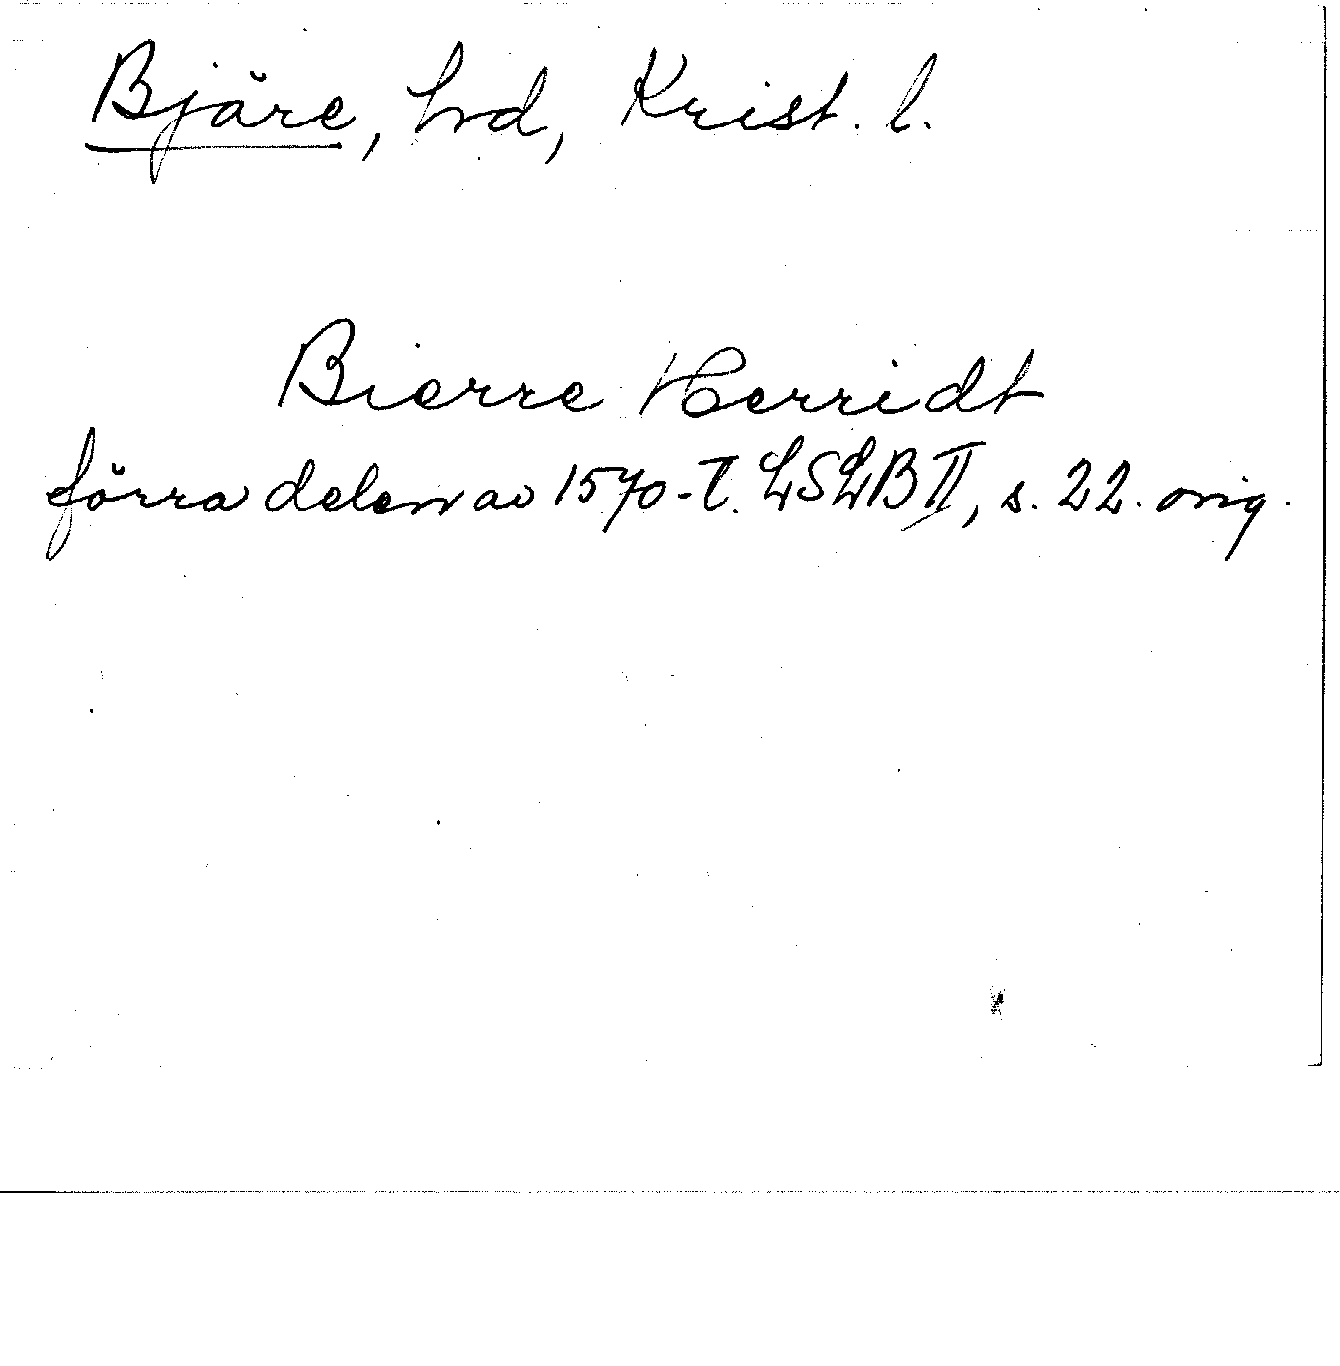 Bjäre, hrd, Krist. l.
Bierre Herridt
förra delen av 1570-t. LSLB II, s. 22. orig.